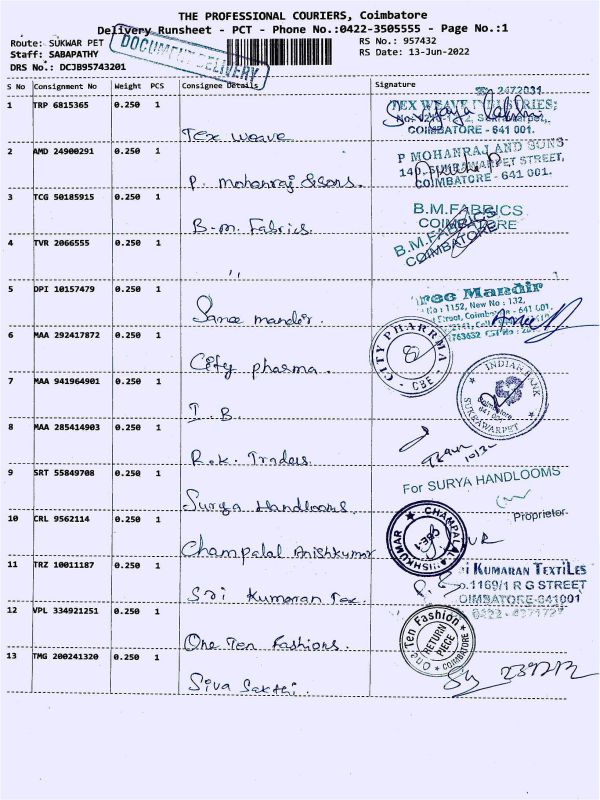 THE PROFESSIONAL COURIERS, Coimbatore
Delivery Runsheet - PCT - Phone No.:0422-3505555 - Page No.:1
Route: SUKWAR PET
RS No.: 957432
Staff: SABAPATHY
RS Date: 13-Jun-2022
DRS No.: DCJB95743201
DOCUMENT DELIVERY
S No Consignment No Weight PCS Consignee Details Signature
1 TRP 6815365 0.250 1 Tex weave
2472031
TEX WEAVE INDUSTRIES;
COIMBATORE - 641 001.
2 AMD 24900291 0.250 1 P. mohanraj &sons.
P MOHANRAJ AND SONS
STREET,
COIMBATORE - 641 001.
3 TCG 50185915 0.250 1 B.m. Fabrics.
B.M.FABRICS
COIMBATORE
4 TVR 2066555 0.250 1 "
B.M.FABRICS
COIMBATORE
5 DPI 10157479 0.250 1 Sree mandir.
ree Mandir
No : 1152, New No : 132,
6 MAA 292417872 0.250 1 City pharma.
CITY PHARRMA
CBE
7 MAA 941964901 0.250 1 I. B
INDIAN BANK
Coimbatore
641 001
SUKRAWARPET
8 MAA 285414903 0.250 1 R.K. Traders.
9 SRT 55849708 0.250 1 Surya Handlooms.
For SURYA HANDLOOMS
Proprietor
10 CRL 9562114 0.250 1 Champalal Anishkumar
CHAMPALAL
ISHKUMAR
CBE-1
11 TRZ 10011187 0.250 1 Sri Kumaran Tex.
i KUMARAN TEXTILES
o.1169/1 R G STREET
OIMBATORE-641001
12 VPL 334921251 0.250 1 One Ten Fashions.
One Ten Fashion
RETURN
PIECE
COIMBATORE
13 TMG 200241320 0.250 1 Siva Sakthi.